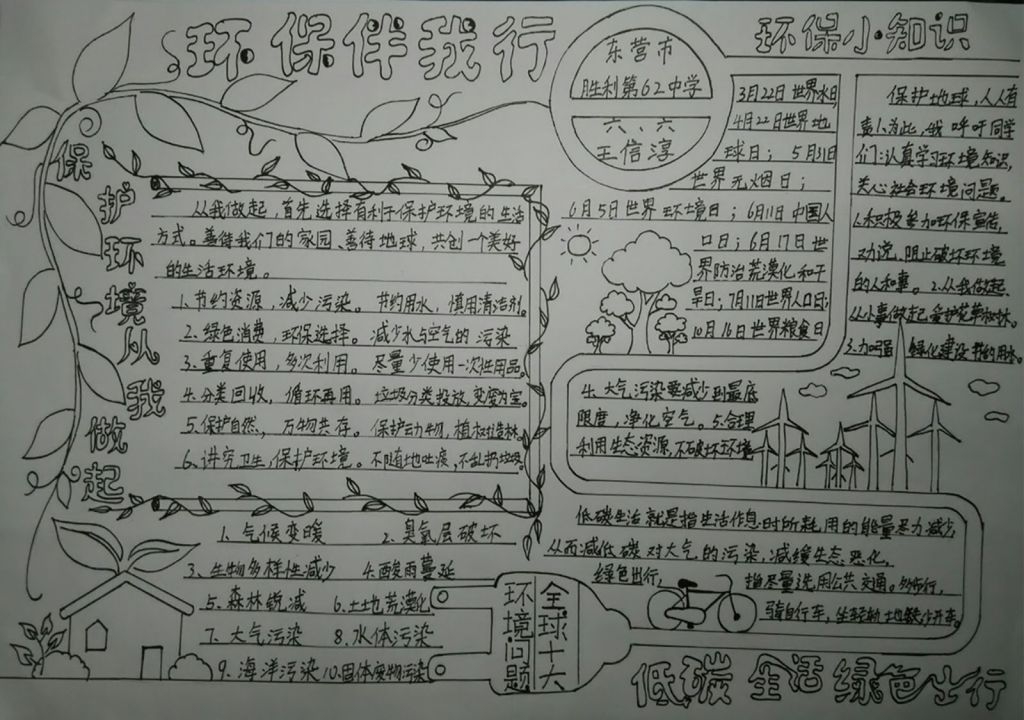 环保伴我行
东营市
胜利第62中学
六、六
王信淳
环保小知识
保护环境从我做起
从我做起,首先选择有利于保护环境的生活
方式。善待我们的家园、善待地球,共创一个美好
的生活环境。
1、节约资源,减少污染。节约用水,慎用清洁剂。
2、绿色消费,环保选择。减少水与空气的污染
3、重复使用,多次利用。尽量少使用一次性用品。
4、分类回收,循环再用。垃圾分类投放,变废为宝。
5、保护自然,万物共存。保护动物,植树造林。
6、讲究卫生,保护环境。不随地吐痰,不乱扔垃圾。
3月22日世界水日
4月22日世界地
球日;5月31日
世界无烟日;
6月5日世界环境日;6月11日中国人
口日;6月17日世
界防治荒漠化和干
旱日;7月11日世界人口日;
10月16日世界粮食日
保护地球,人人有
责!为此,我呼吁同学
们:认真学习环境知识,
关心社会环境问题。
1.积极参加环保宣传,
劝说、阻止破坏环境
的人和事。2.从我做起
从小事做起爱护花草和林。
3.加强 绿化建设节约用水。
4、大气污染要减少到最底
限度,净化空气。5.合理
利用生态资源,不破坏环境
低碳生活就是指生活作息时所耗用的能量尽力减少,
从而减低碳对大气的污染,减缓生态恶化,
绿色出行, 指尽量选用公共交通。多步行,
骑自行车,坐轻轨地铁少开车。
1、气候变暖 2、臭氧层破坏
3、生物多样性减少 4、酸雨蔓延
5、森林锐减 6、土地荒漠化
7、大气污染 8、水体污染
9、海洋污染 10、固体废物污染
全球十大
环境问题
低碳 生活 绿色出行